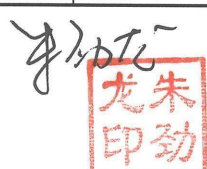 朱劲龙
朱劲龙印